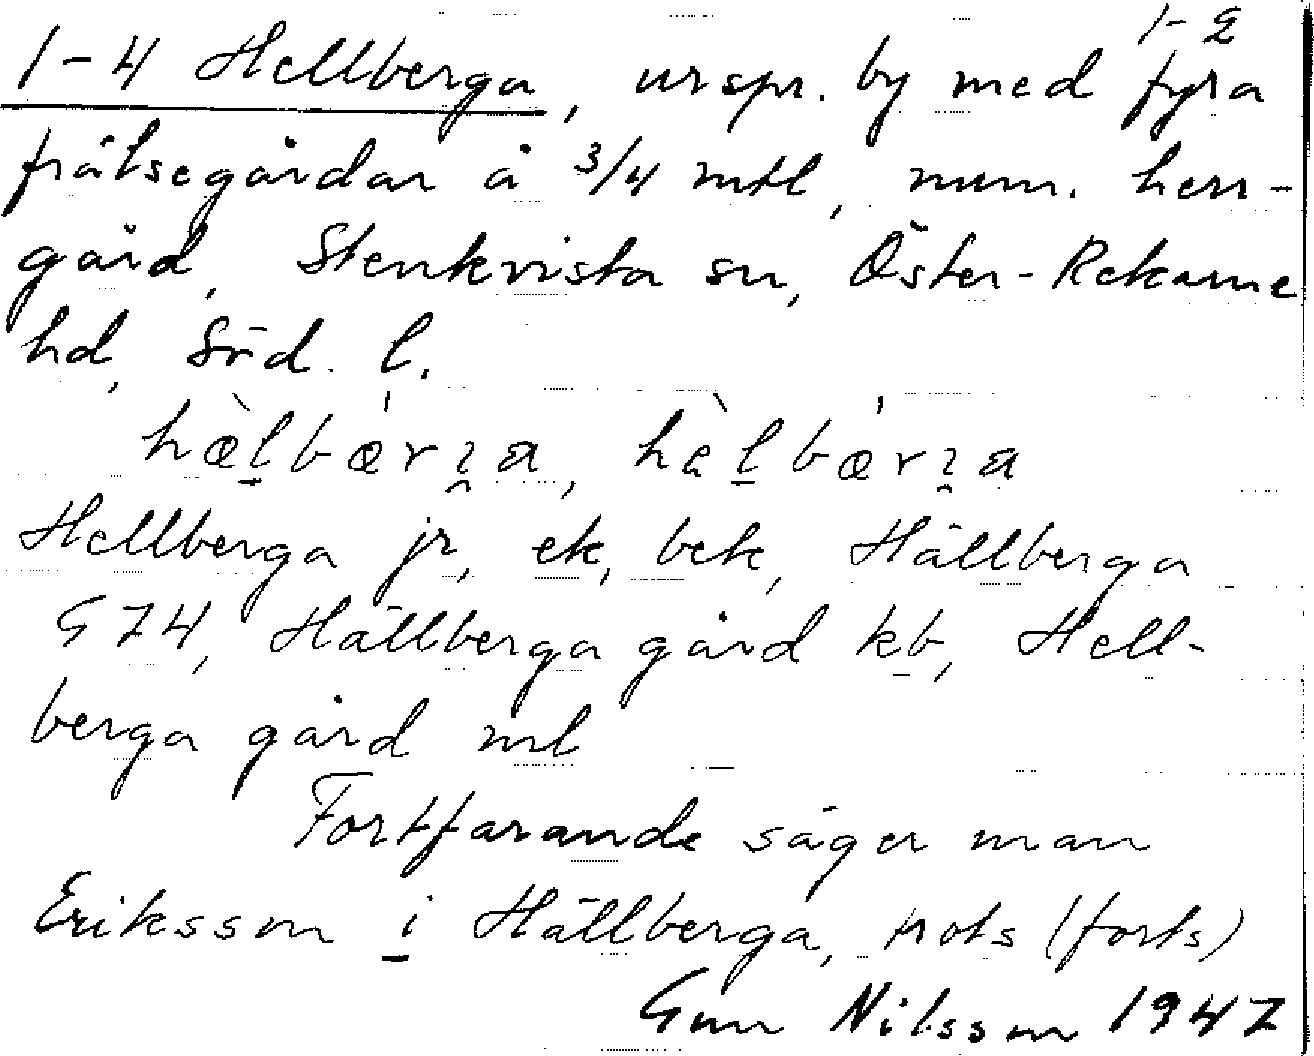 1-2
1-4 Hellberga, urspr. by med fyra
frälsegårdar à 3/4 mtl, num. herr-
gård, Stenkvista sn, Öster-Rekarne
hd, Söd. l.
hæ̀lbær̍ꞔa, hèlbær̍ꞔa
Hellberga jr, ek, bek, Hällberga
G 74, Hällberga gård kb, Hell-
berga gård ml
Fortfarande säger man
Eriksson i Hällberga, trots (forts)
Gun Nilsson 1947